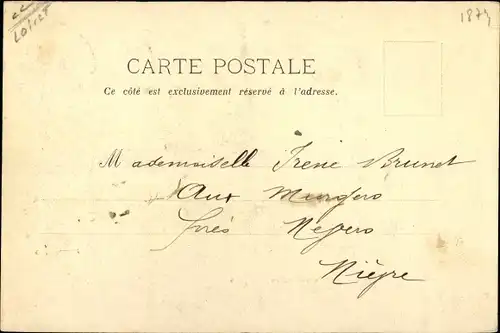 cc
1874
CARTE POSTALE
Ce côté est exclusivement réservé à l'adresse.
Mademoiselle Irene Brunet
Aux Murgers
près Nevers
Nièvre